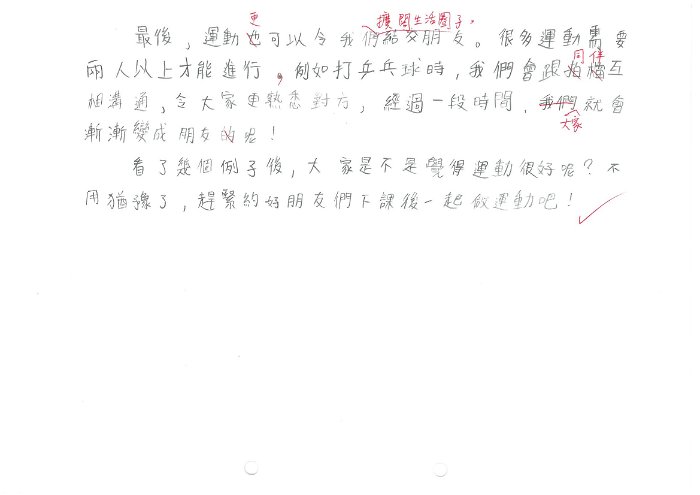 更
擴闊生活圈子，
最後，運動也可以令我們結交朋友。很多運動需要
同伴
兩人以上才能進行，例如打乒乓球時，我們會跟拍檔互
相溝通，令大家更熟悉對方，經過一段時間，我們就會
大家
漸漸變成朋友的呢！
看了幾個例子後，大家是不是覺得運動很好呢？不
用猶豫了，趕緊約好朋友們下課後一起做運動吧！